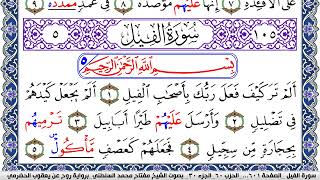 عَلَى الْأَفْـِٔدَةِ ٧ إِنَّهَا عَلَيْهُم مُّوصَدَةٌ ٨ فِي عَمَدٍ مُّمَدَّدَةٍ ٩
٥ سُورَةُ الْفِيلِ ١٠٥
بِسْمِ اللَّهِ الرَّحْمَٰنِ الرَّحِيمِ
أَلَمْ تَرَ كَيْفَ فَعَلَ رَبُّكَ بِأَصْحَابِ الْفِيلِ ١ أَلَمْ يَجْعَلْ كَيْدَهُمْ
فِي تَضْلِيلٍ ٢ وَأَرْسَلَ عَلَيْهُمْ طَيْرًا أَبَابِيلَ ٣ تَرْمِيهُم
بِحِجَارَةٍ مِّن سِجِّيلٍ ٤ فَجَعَلَهُمْ كَعَصْفٍ مَّأْكُولٍ ٥
سورة الفيل الصفحة ٦٠١ الحزب ٦٠ الجزء ٣٠ بصوت الشيخ مفتاح محمد السلطني برواية روح عن يعقوب الحضرمي